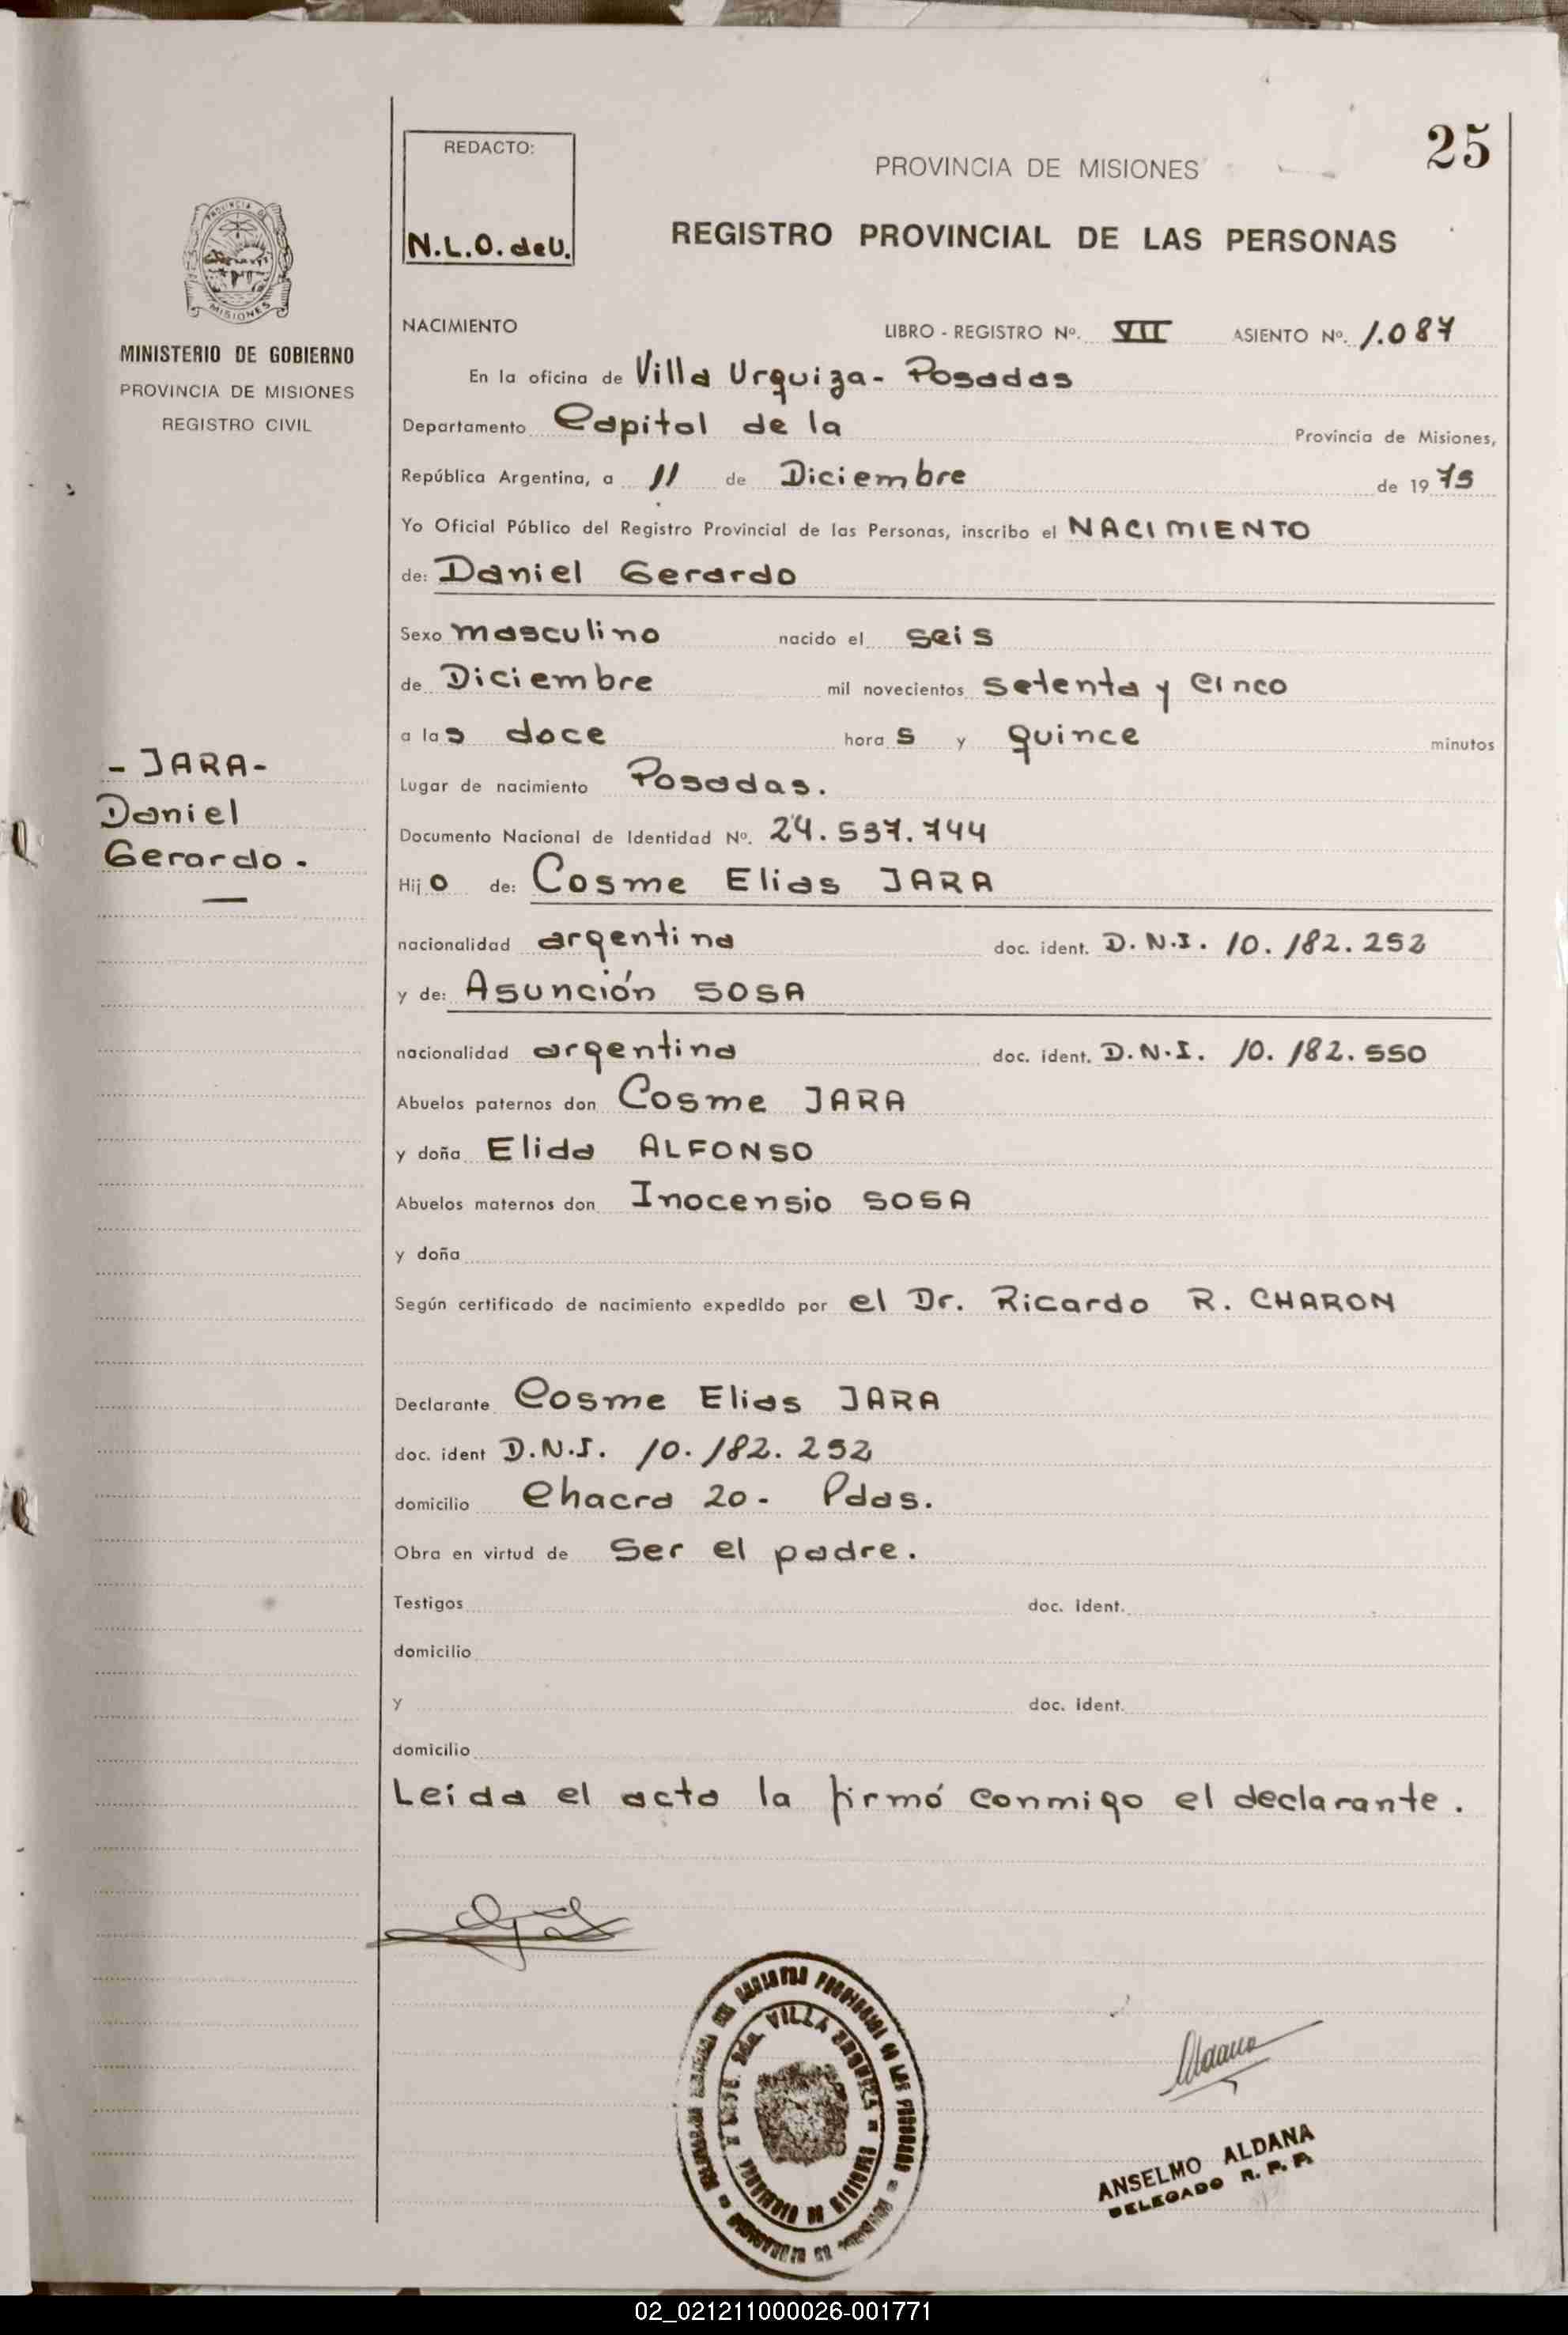 25
REDACTO:
N.L.O. deU.
PROVINCIA DE MISIONES
REGISTRO PROVINCIAL DE LAS PERSONAS
PROVINCIA DE
MISIONES
MINISTERIO DE GOBIERNO
PROVINCIA DE MISIONES
REGISTRO CIVIL
NACIMIENTO LIBRO - REGISTRO Nº. VII ASIENTO Nº. 1.087
En la oficina de Villa Urquiza - Posadas
Departamento Capital de la Provincia de Misiones,
República Argentina, a 11 de Diciembre de 1975
Yo Oficial Público del Registro Provincial de las Personas, inscribo el NACIMIENTO
de: Daniel Gerardo
Sexo masculino nacido el seis
de Diciembre mil novecientos setenta y cinco
a las doce horas y quince minutos
- JARA-
Daniel
Gerardo.-
Lugar de nacimiento Posadas.
Documento Nacional de Identidad Nº. 24.537.744
Hijo de: Cosme Elias JARA
nacionalidad argentina doc. ident. D.N.I. 10.182.252
y de: Asunción SOSA
nacionalidad argentina doc. ident. D.N.I. 10.182.550
Abuelos paternos don Cosme JARA
y doña Elida ALFONSO
Abuelos maternos don Inocensio SOSA
y doña
Según certificado de nacimiento expedido por el Dr. Ricardo R. CHARON
Declarante Cosme Elias JARA
doc. ident D.N.I. 10.182.252
domicilio Chacra 20- Pdas.
Obra en virtud de Ser el padre.
Testigos doc. ident.
domicilio
y doc. ident.
domicilio
Leída el acta la firmó conmigo el declarante.
REGISTRO PROVINCIAL DE LAS PERSONAS
VILLA URQUIZA
Aldana
ANSELMO ALDANA
DELEGADO R. P. P.
02_021211000026-001771